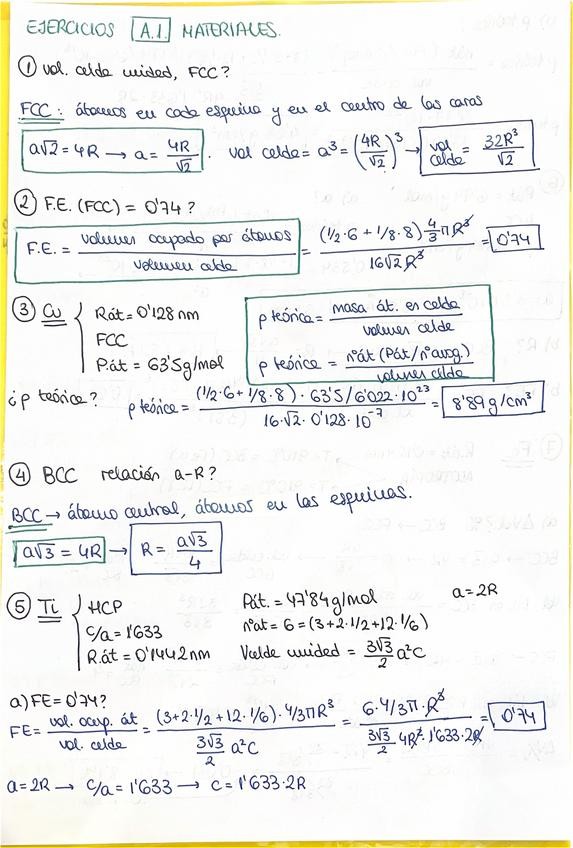 EJERCICIOS A.1. MATERIALES.
① vol. celda unidad, FCC?
FCC: átomos en cada esquina y en el centro de las caras
a√2 = 4R → a = 4R/√2 . vol celda = a³ = (4R/√2)³ → vol celda = 32R³/√2
② F.E. (FCC) = 0'74?
F.E. = volumen ocupado por átomos / volumen celda = (1/2·6 + 1/8·8) 4/3 π R³ / 16√2 R³ = 0'74
③ Cu { R.át = 0'128 nm
FCC
P.át = 63'5 g/mol
ρ teórica = masa át. en celda / volumen celda
ρ teórica = nºát (Pát/nºavog.) / volumen celda
¿ρ teórica? ρ teórica = (1/2·6 + 1/8·8) · 63'5/6'022·10²³ / 16·√2·0'128·10⁻⁷ = 8'89 g/cm³
④ BCC relación a-R?
BCC → átomo central, átomos en las esquinas.
a√3 = 4R → R = a√3/4
⑤ Ti { HCP Pát. = 47'84 g/mol a = 2R
c/a = 1'633 nºat = 6 = (3+2·1/2+12·1/6)
R.át = 0'1442 nm Vcelda unidad = 3√3/2 a²C
a) FE = 0'74?
FE = vol. ocup. át / vol. celda = (3+2·1/2+12·1/6)·4/3πR³ / 3√3/2 a²C = 6·4/3π·R³ / 3√3/2 4R²·1'633·2R = 0'74
a = 2R → c/a = 1'633 → c = 1'633·2R